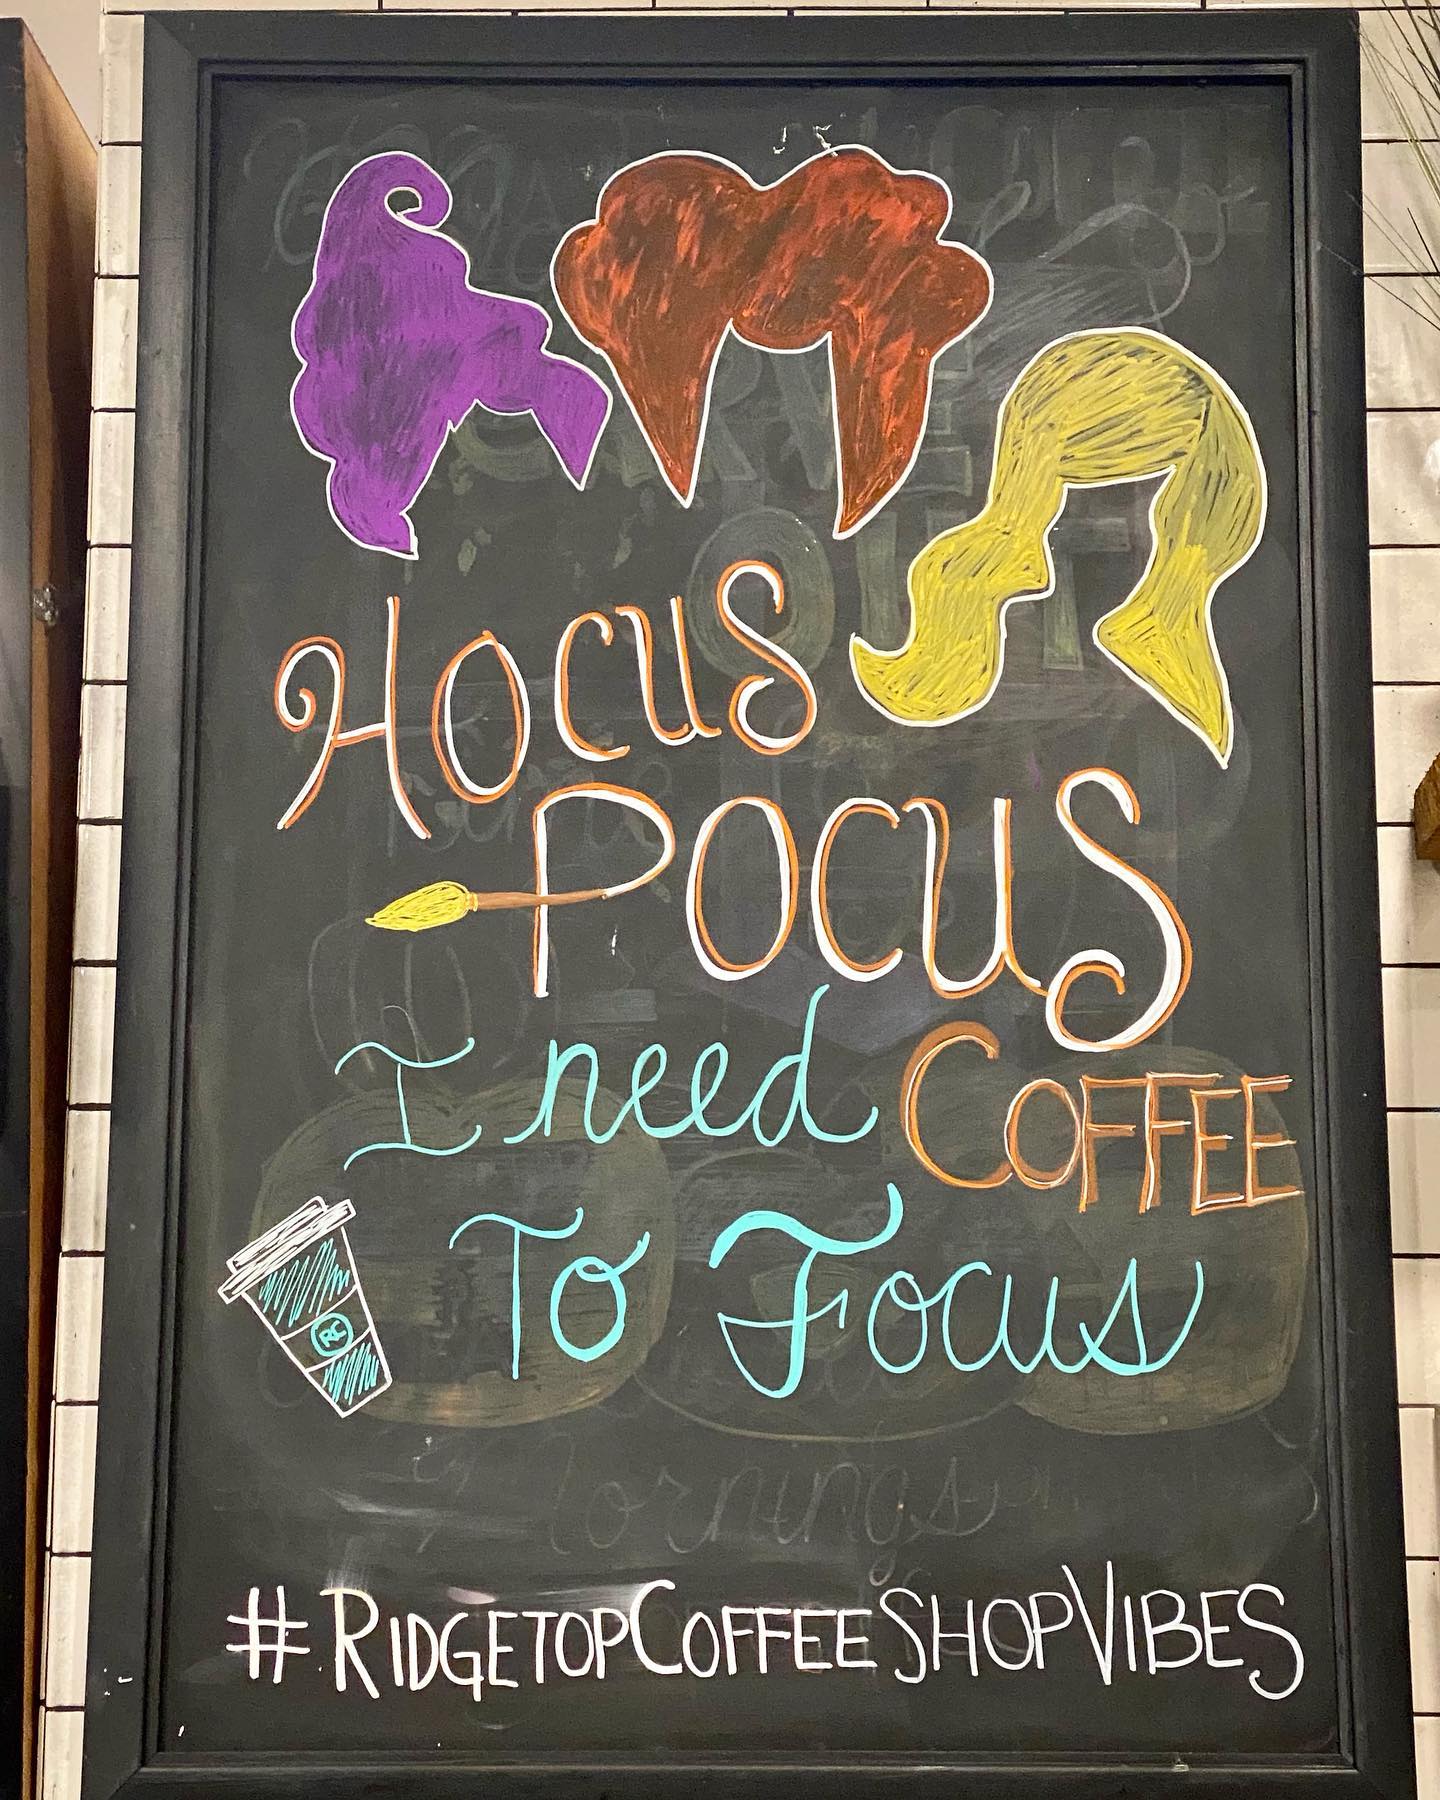 Hocus
Pocus
I need COFFEE
To Focus
RC
#RIDGETOPCOFFEESHOPVIBES